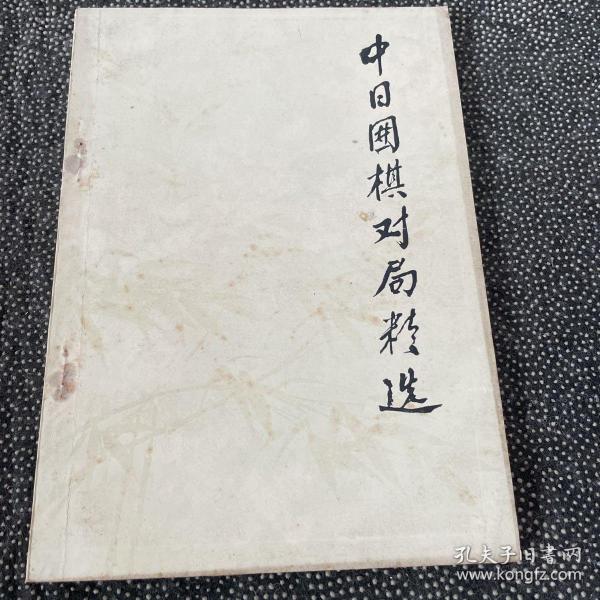 中日围棋对局精选
孔夫子旧书网
www.kongfz.com